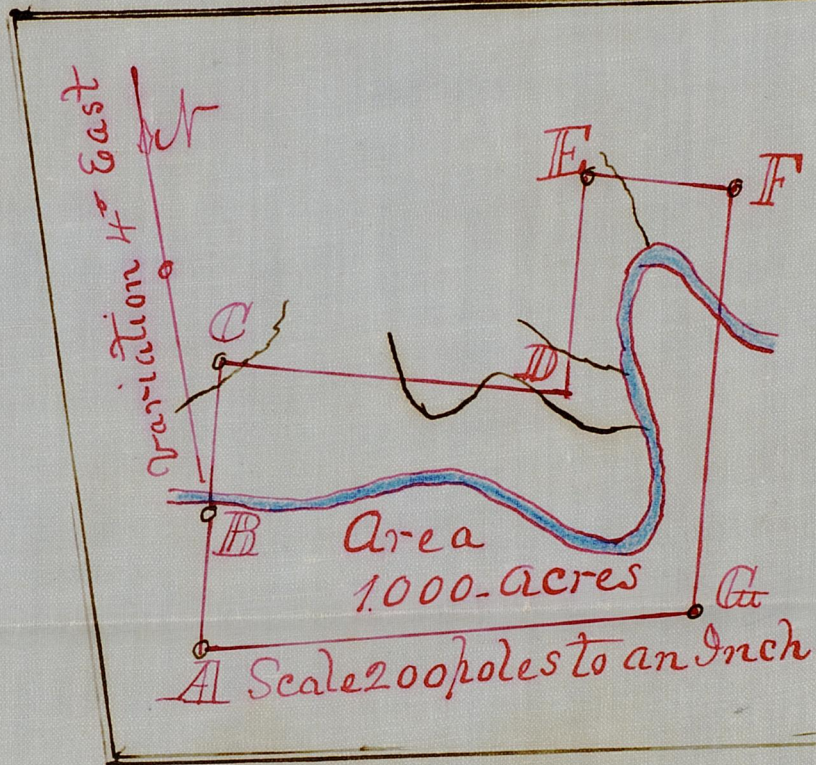 Variation 4° East
N
E
F
C
D
B
Area
1.000-acres
G
A Scale 200 poles to an Inch